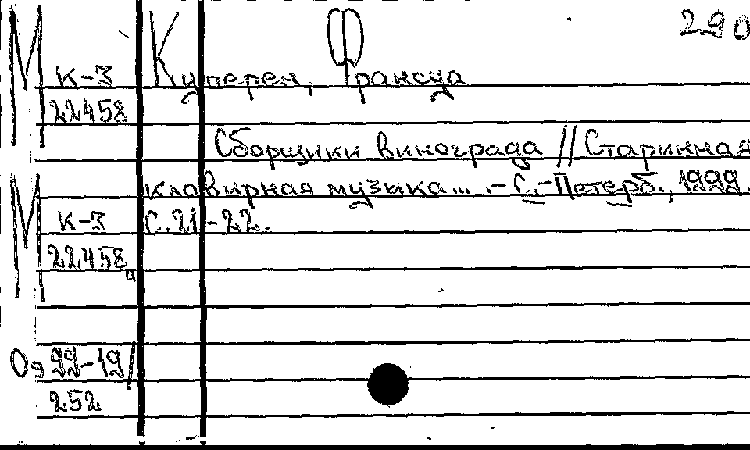 290
М К-3 Куперен, Франсуа
22458
Сборщики винограда // Старинная
клавирная музыка... - С.-Петерб., 1999
М К-3 С.21-22.
22458
Оя 99-19/
252